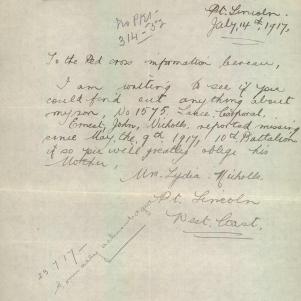 Pt. Lincoln.
July, 14th, 1917,
To the Red cross information bereau,
I am writing to see if you
could find out anything about
my son, No 1575 Lance, Corporal.
Ernest, John, Nicholls. reported missing
since May, the, 9th, 1917, 10th Battalion
if so you will greatly oblige his
Mother,
Mrs. Lydia. Nicholls.
Pt. Lincoln
West, Coast.
23.7.17.